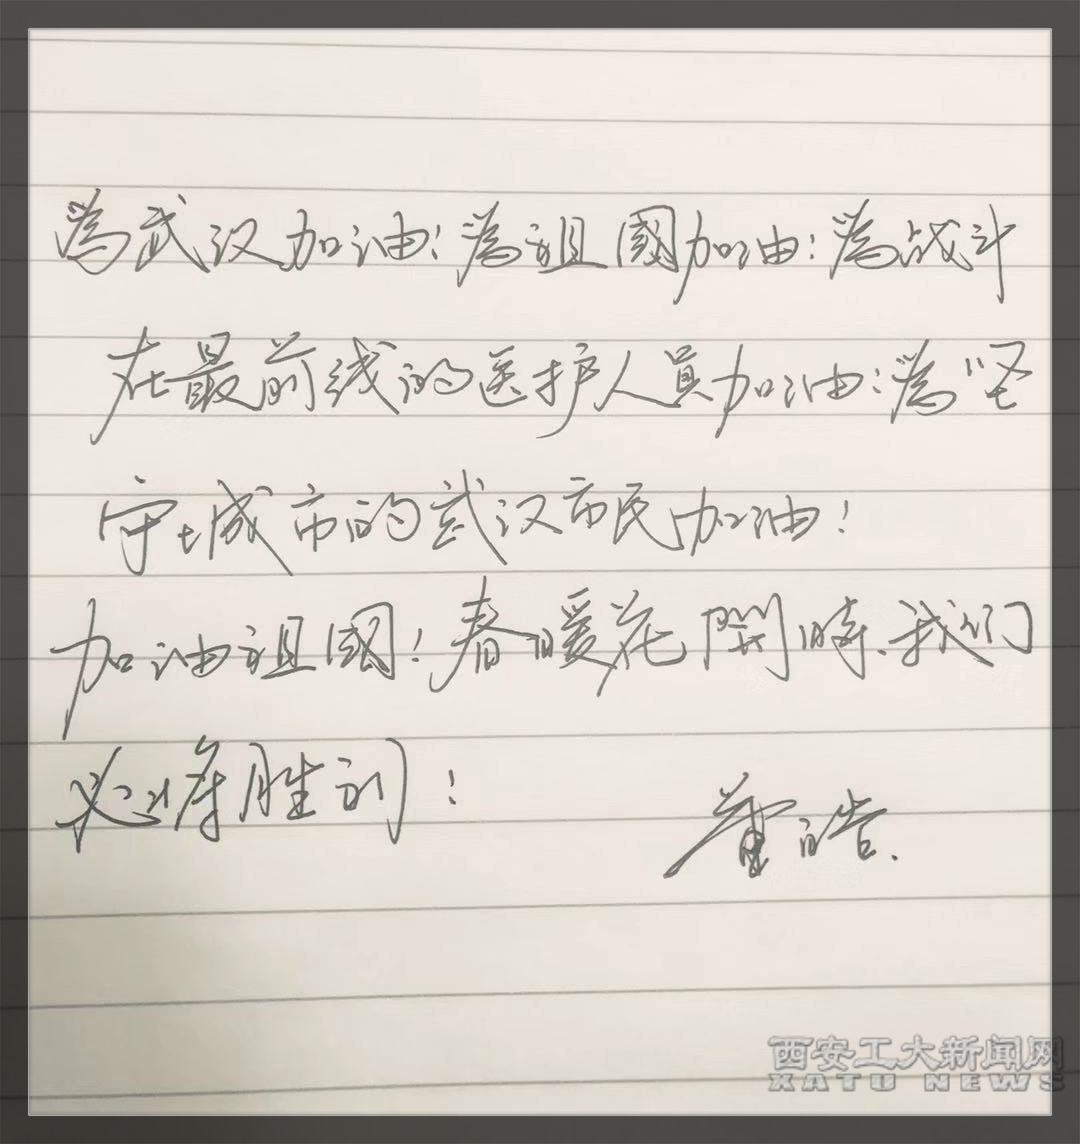 為武汉加油！為祖國加油！為战斗
在最前线的医护人員加油！為坚
守城市的武汉市民加油！
加油祖國！春暖花開時、我们
必将胜利！
董皓.
西安工大新闻网
XATU NEWS